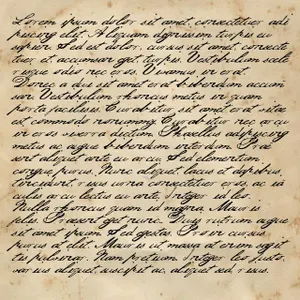 Lorem ipsum dolor sit amet, consectetuer adi
piscing elit. Aliquam dignissim turpis eu
sapien. Sed est dolor, cursus sit amet, consecte
tuer, et, accumsan get, turpis. Vestibulum scele
risque odio nec eros. Vivamus in erat.
Donec a dui sit amet erat bibendum accum
san. Vestibulum rhoncus metus in quam
porta facilisis. Curabitur sit amet erat vitae
est commodo nonummy. Curabitur nec arcu
in eros viverra dictum. Phasellus adipiscing
metus ac augue bibendum interdum. Prae
sent aliquet ante eu arcu. Sed elementum,
congue purus. Nunc aliquet, lacus et dapibus,
tincidunt, risus urna consectetuer eros, ac ia
culis arcu lectus eu ante. Integer id leo.
Nulla rhoncus quam in magna. Mauris
felis. Praesent get nunc. Duis rutrum augue
sit amet ipsum. Sed egestas. Proin cursus
purus at elit. Mauris ut massa at enim sagit
tis pulvinar. Nam pretium. Integer leo justo,
varius aliquet, suscipit ac, aliquet sed, risus.